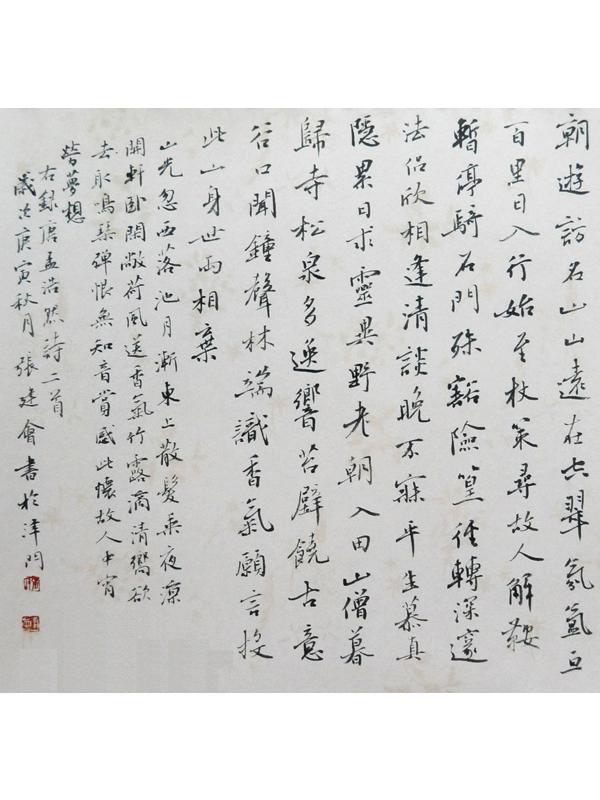 朝遊訪名山山遠在空翠氛氳亘
百里日入行始至杖策尋故人解鞍
暫停騎石門殊豁險篁徑轉深邃
法侶欣相逢清談晚不寐平生慕真
隱累日求靈異野老朝入田山僧暮
歸寺松泉多逸響苔壁饒古意
谷口聞鐘聲林端識香氣願言投
此山身世兩相棄
山光忽西落池月漸東上散髮乘夜涼
開軒臥閑敞荷風送香氣竹露滴清響欲
去取鳴琴彈恨無知音賞感此懷故人中宵
勞夢想
右錄唐孟浩然詩二首
歲次庚寅秋月張建會書於津門